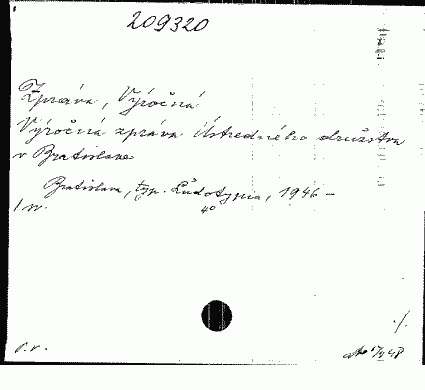 209320
Zpráva, Výročná
Výročná zpráva Ústredného družstva
v Bratislave
Bratislava, typ. Ľudotypia, 1946 –
4°